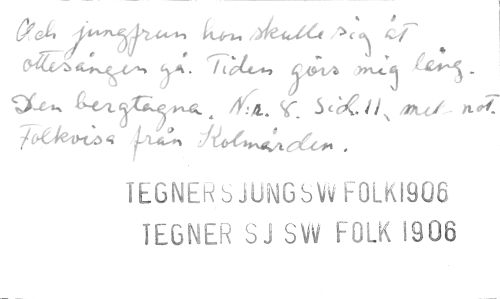 Och jungfrun hon skulle sig åt
ottesången gå. Tiden görs mig lång.
Den bergtagna. N:r. 8. Sid. 11, med not.
Folkvisa från Kolmården.
TEGNERSJUNGSWFOLK1906
TEGNER SJ SW FOLK 1906